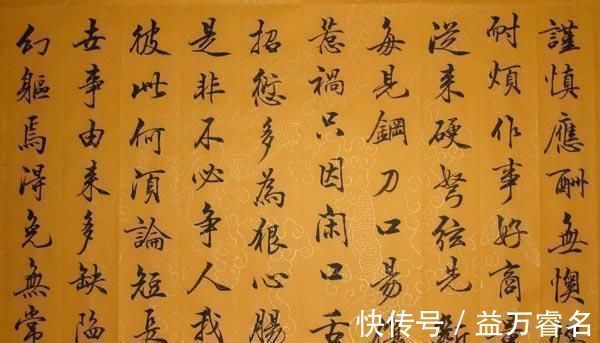 謹慎應酬無懊
耐煩作事好商
從来硬弩弦先
每見鋼刀口易
惹禍只因閑口舌
招愆多為狠心腸
是非不必争人我
彼此何須論短長
世事由来多缺陷
幻軀焉得免無常
快传号 / 益万睿名